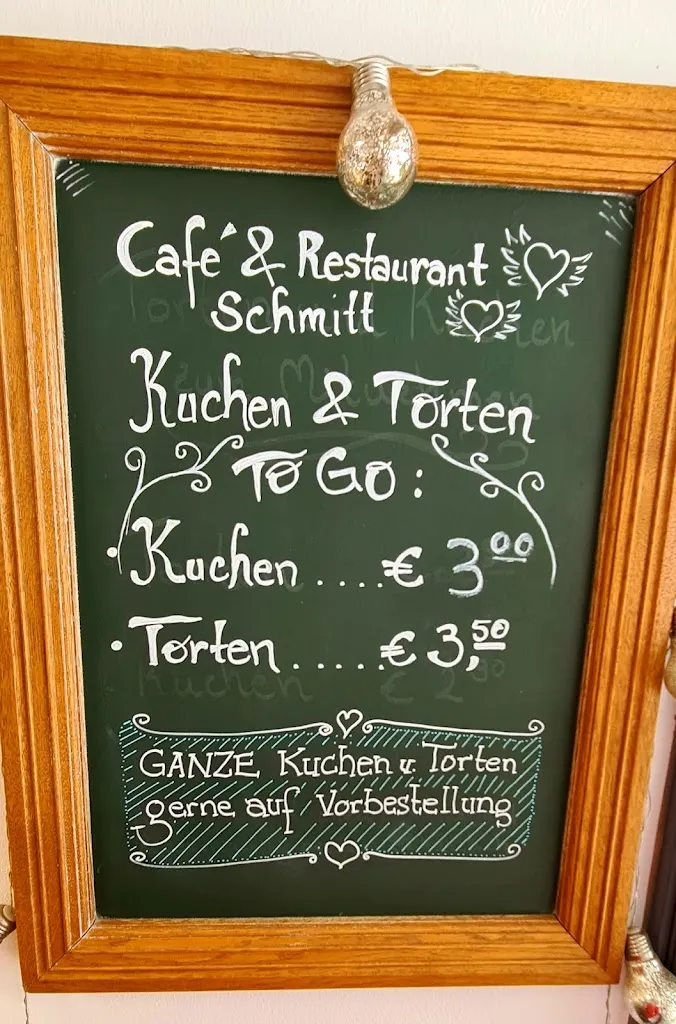 Café & Restaurant
Schmitt
Kuchen & Torten
To Go :
• Kuchen .... € 3 00
• Torten ..... € 3,50
GANZE Kuchen u. Torten
gerne auf Vorbestellung